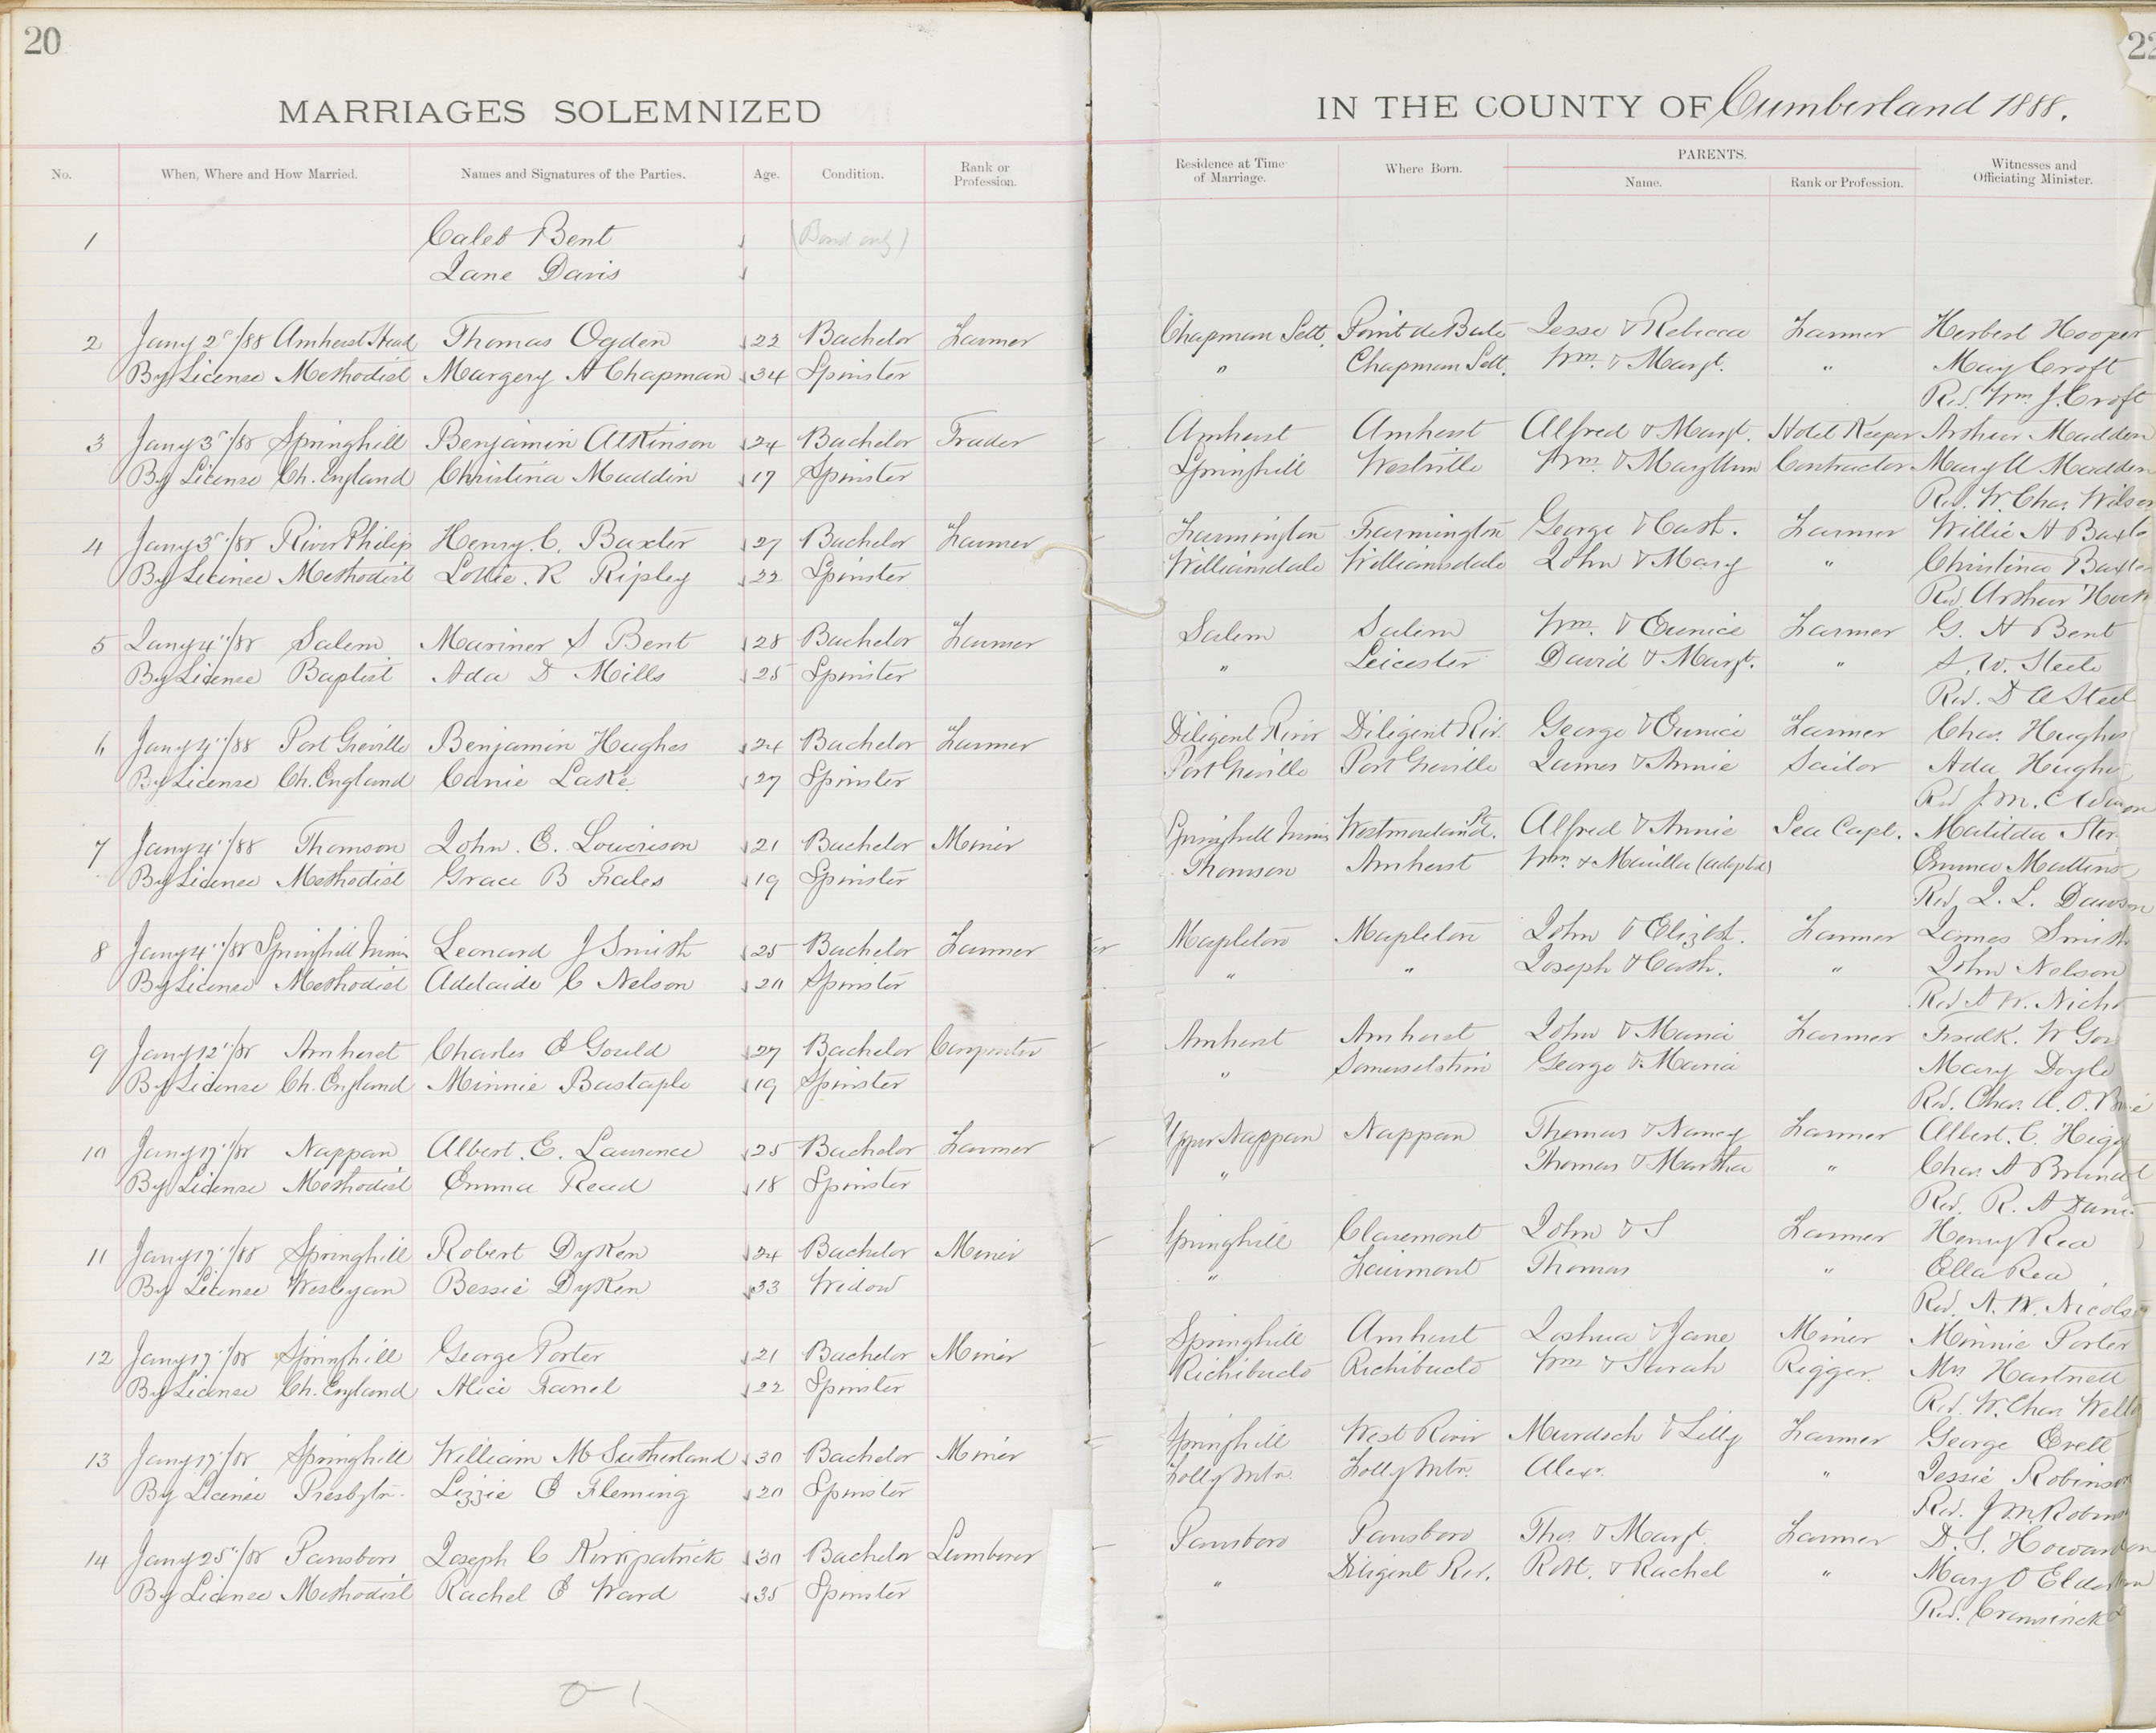 20
22
MARRIAGES SOLEMNIZED
IN THE COUNTY OF Cumberland 1888.
No. When, Where and How Married. Names and Signatures of the Parties. Age. Condition. Rank or Profession. Residence at Time of Marriage. Where Born. PARENTS. Name. Rank or Profession. Witnesses and Officiating Minister.
1 Caleb Bent (Bond only)
Jane Davis
2 Jany 2d/88 Amherst Head Thomas Ogden 22 Bachelor Farmer Chapman Sett. Point de Bute Jesse & Rebecca Farmer Herbert Hooper
By License Methodist Margery A Chapman 34 Spinster " Chapman Sett. Wm. & Margt. " May Croft
Rev. Wm. J. Croft
3 Jany 3d/88 Springhill Benjamin Atkinson 24 Bachelor Trader Amherst Amherst Alfred & Margt. Hotel Keeper Arthur Madden
By License Ch. England Christina Maddin 17 Spinster Springhill Westville Wm. & Mary Ann Contractor Mary A Madden
Rev. W. Chas. Wilson
4 Jany 3d/88 River Philip Henry. C. Baxter 27 Bachelor Farmer Farmington Farmington George & Cath. Farmer Willie A
By License Methodist Lottie. R Ripley 22 Spinster Williamsdale Williamsdale John & Mary " Christina
Rev. Arthur
5 Jany 4"/88 Salem Mariner S Bent 28 Bachelor Farmer Salem Salem Wm. & Eunice Farmer G. H Bent
By License Baptist Ada D Mills 25 Spinster " Leicester David & Margt. " A. W. Steele
Rev. D A Steel
6 Jany 4"/88 Port Greville Benjamin Hughes 24 Bachelor Farmer Diligent River Diligent Riv. George & Eunice Farmer Chas. Hughes
By License Ch. England Canie Lake 27 Spinster Port Greville Port Greville James & Annie Sailor Ada Hughes
Rev J. M. C
7 Jany 4"/88 Thomson John. E. Lowerison 21 Bachelor Miner Springhill Mines Westmorland Alfred & Annie Sea Capt. Matilda
By License Methodist Grace B Fales 19 Spinster Thomson Amherst Wm. & (adopted) Emma Mullins
Rev. J. L. Dawson
8 Jany 4"/88 Springhill Mines Leonard J Smith 25 Bachelor Farmer Mapleton Mapleton John & Elizbt. Farmer James Smith
By License Methodist Adelaide C Nelson 20 Spinster " " Joseph & Cath. " John Nelson
Rev A W.
9 Jany 12"/88 Amherst Charles E Gould 27 Bachelor Carpenter Amherst Amherst John & Maria Farmer Fredk. W
By License Ch. England Minnie Bastaple 19 Spinster " George & Maria Mary Doyle
Rev. Chas. A. O.
10 Jany 17"/88 Nappan Albert. E. Laurence 25 Bachelor Farmer Upper Nappan Nappan Thomas & Nancy Farmer Albert. C.
By License Methodist Emma Read 18 Spinster " Thomas & Martha " Chas. A
Rev. R. A
11 Jany 17"/88 Springhill Robert Dyken 24 Bachelor Miner Springhill Claremont John & S Farmer Henry Rea
By License Wesleyan Bessie Dyken 33 Widow " Thomas " Ella Rea
Rev. A. W.
12 Jany 17"/88 Springhill George Porter 21 Bachelor Miner Springhill Amherst Joshua & Jane Miner Minnie Porter
By License Ch. England Alice 22 Spinster Richibucto Richibucto Wm & Sarah Rigger Mrs Hartnell
Rev. W. Chas
13 Jany 17"/88 Springhill William McSutherland 30 Bachelor Miner Springhill West River Murdoch & Lilly Farmer George
By License Presbytr. Lizzie E Fleming 20 Spinster Folly Mtn. Folly Mtn. Alexr. " Jessie
Rev. J. M.
14 Jany 25"/88 Parrsboro Joseph C Kirkpatrick 30 Bachelor Lumberer Parrsboro Parrsboro Thos. & Margt. Farmer D. S.
By License Methodist Rachel E Ward 35 Spinster " Diligent Riv. Robt. & Rachel " Mary O
Rev.